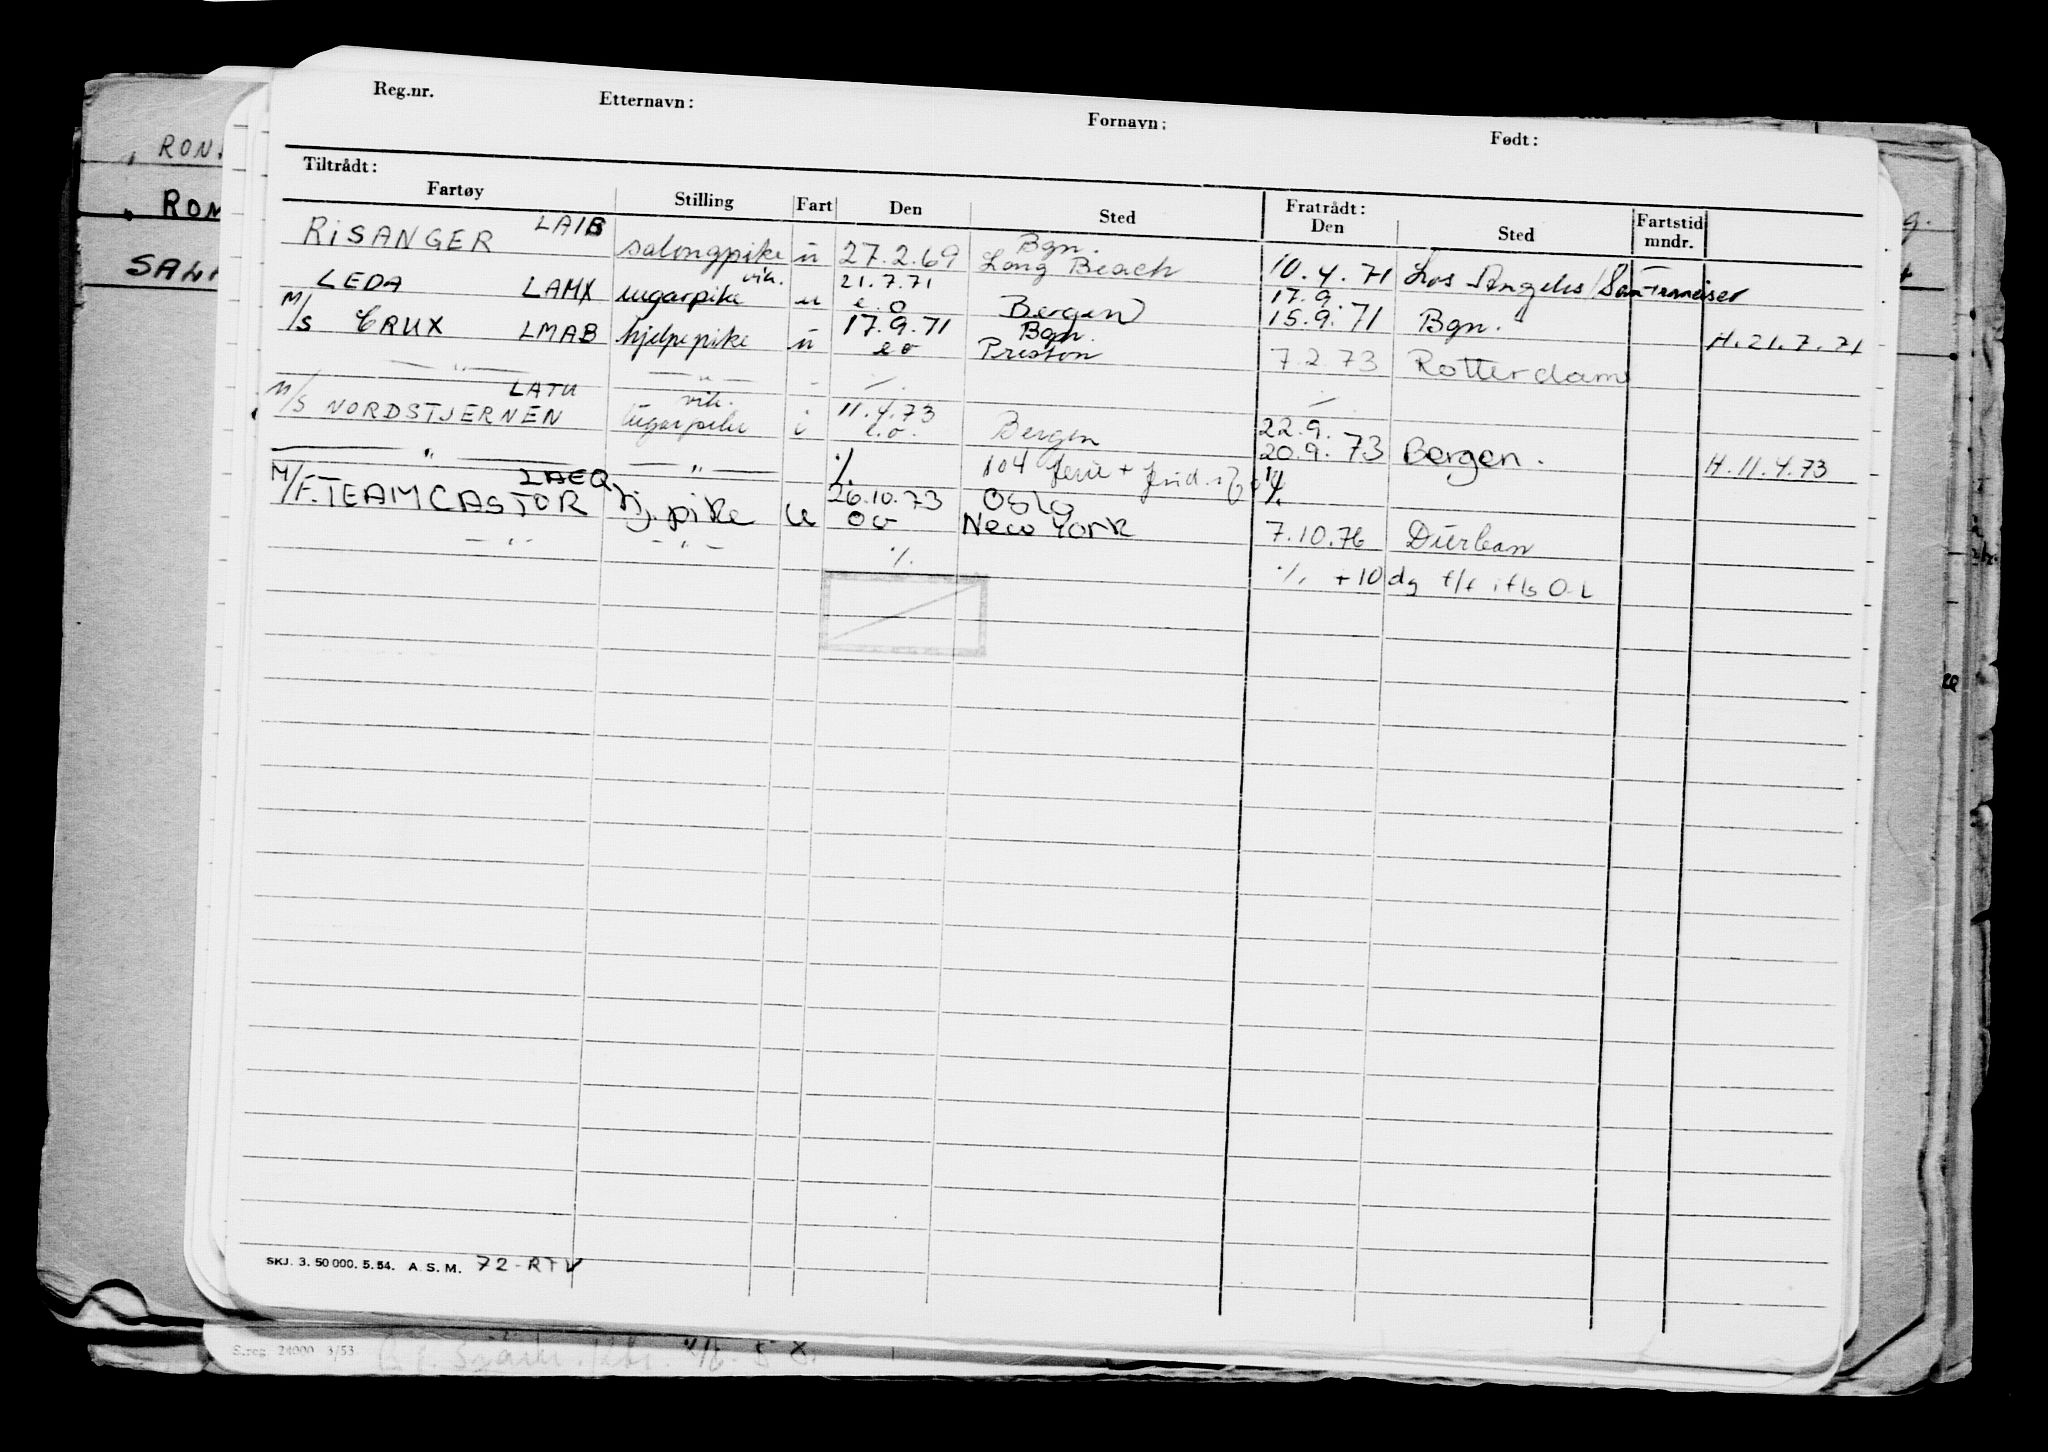 Reg.nr. Etternavn: Fornavn: Født:
Tiltrådt: Fratrådt:
Fartøy Stilling Fart Den Sted Den Sted Fartstid mndr.
RISANGER LAIB salongpike u 27.2.69 Bgn. Long Beach 10.4.71 Los Angeles/San Franciser
LEDA LAMX vik. lugarpike u 21.7.71 e.o Bergen 17.9. 15.9.71 Bgn. H. 21.7.71
M/S CRUX LMAB hjelpepike u 17.9.71 eo Bgn. Preston 7.2.73 Rotterdam
— " — — " — - ·/. ·/.
M/S NORDSTJERNEN LATU vik. lugarpike i 11.4.73 e.o. Bergen 22.9. 20.9.73 Bergen. H. 11.4.73
— " — — " — ·/. 104 ferie + ·/.
M/F. TEAMCASTOR LAEQ hj. pike u 26.10.73 oo Oslo New York 7.10.76 Durban
— " — — " — ·/. ·/. +10 dg f/f i fls O-L
SKJ. 3. 50 000. 5.54. A. S. M. 72-RTV
RON.
ROM
SAL
S.reg 24000 3/53